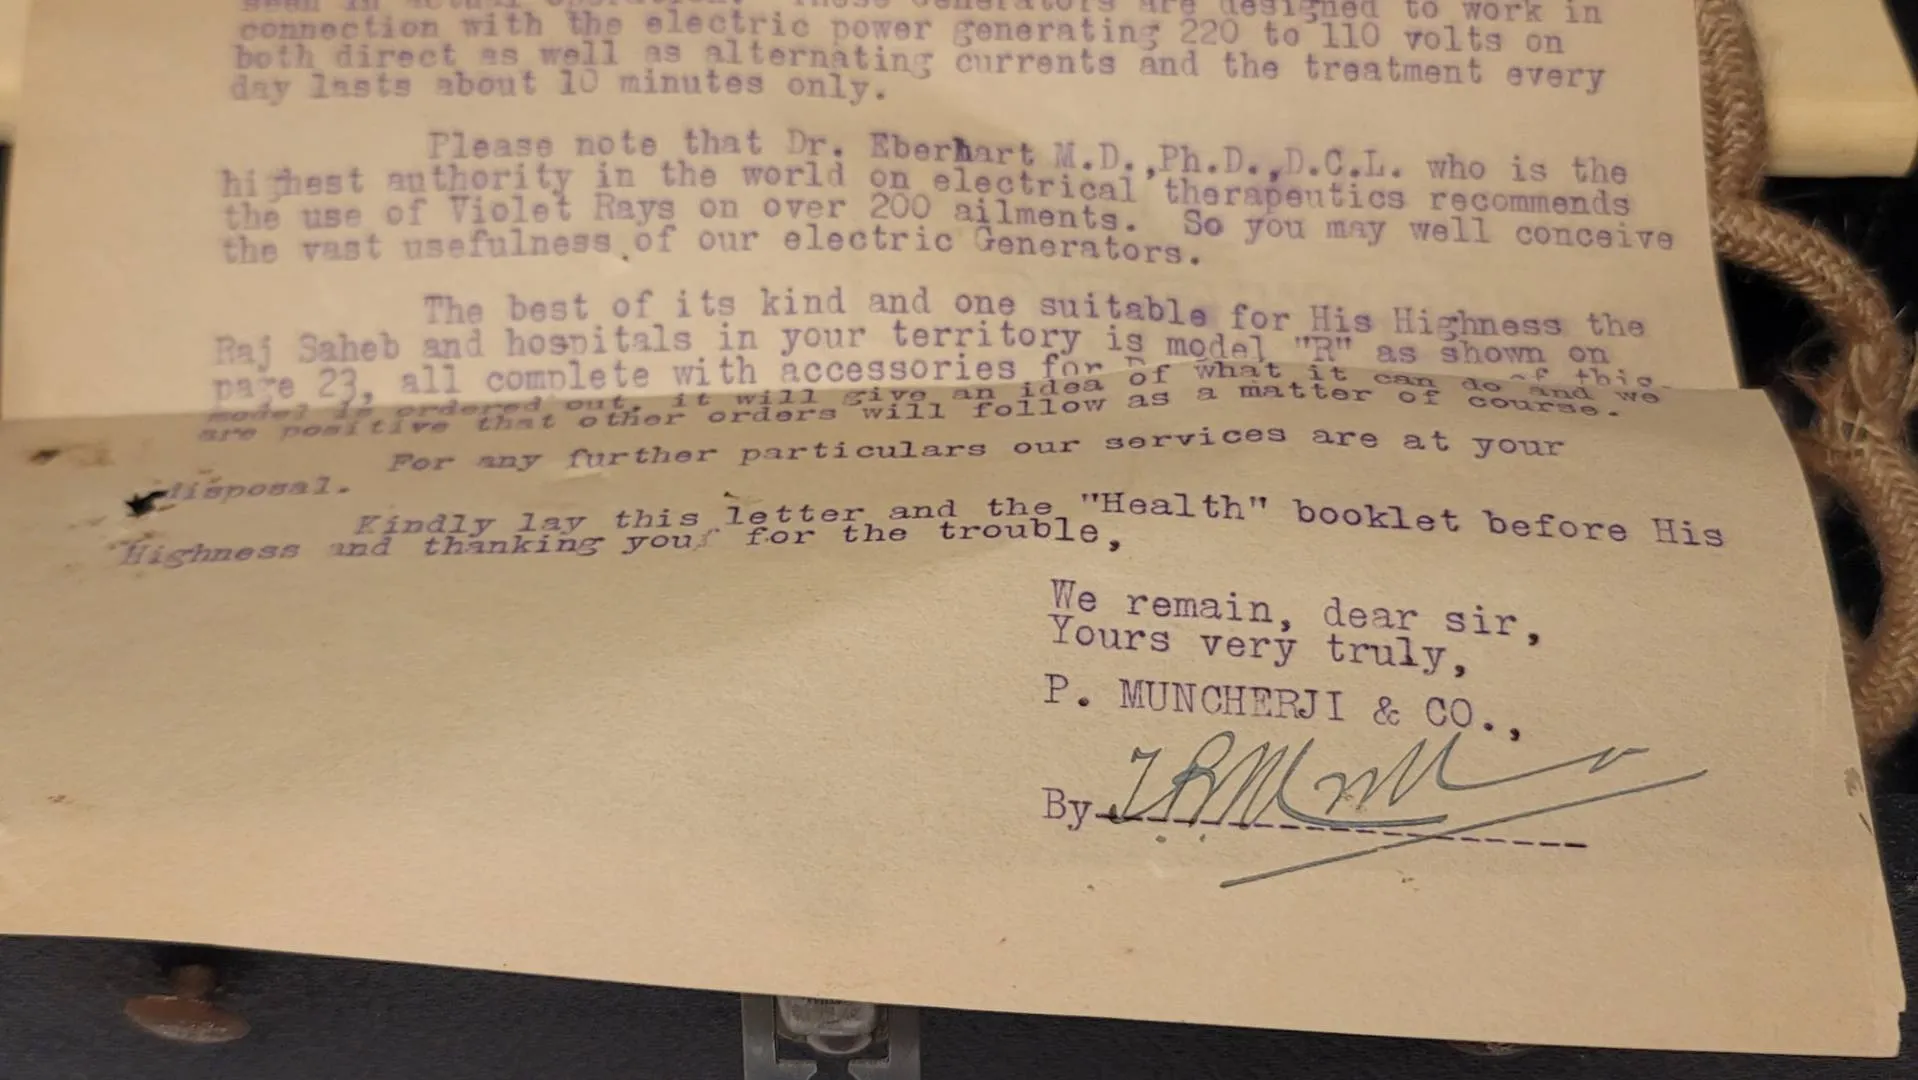 seen in actual operation. These Generators are designed to work in
connection with the electric power generating 220 to 110 volts on
both direct as well as alternating currents and the treatment every
day lasts about 10 minutes only.
Please note that Dr. Eberhart M.D.,Ph.D.,D.C.L. who is the
highest authority in the world on electrical therapeutics recommends
the use of Violet Rays on over 200 ailments. So you may well conceive
the vast usefulness of our electric Generators.
The best of its kind and one suitable for His Highness the
Raj Saheb and hospitals in your territory is model "R" as shown on
page 23, all complete with accessories for of this
model is ordered out, it will give an idea of what it can do and we
are positive that other orders will follow as a matter of course.
For any further particulars our services are at your
disposal.
Kindly lay this letter and the "Health" booklet before His
Highness and thanking you for the trouble,
We remain, dear sir,
Yours very truly,
P. MUNCHERJI & CO.,
By